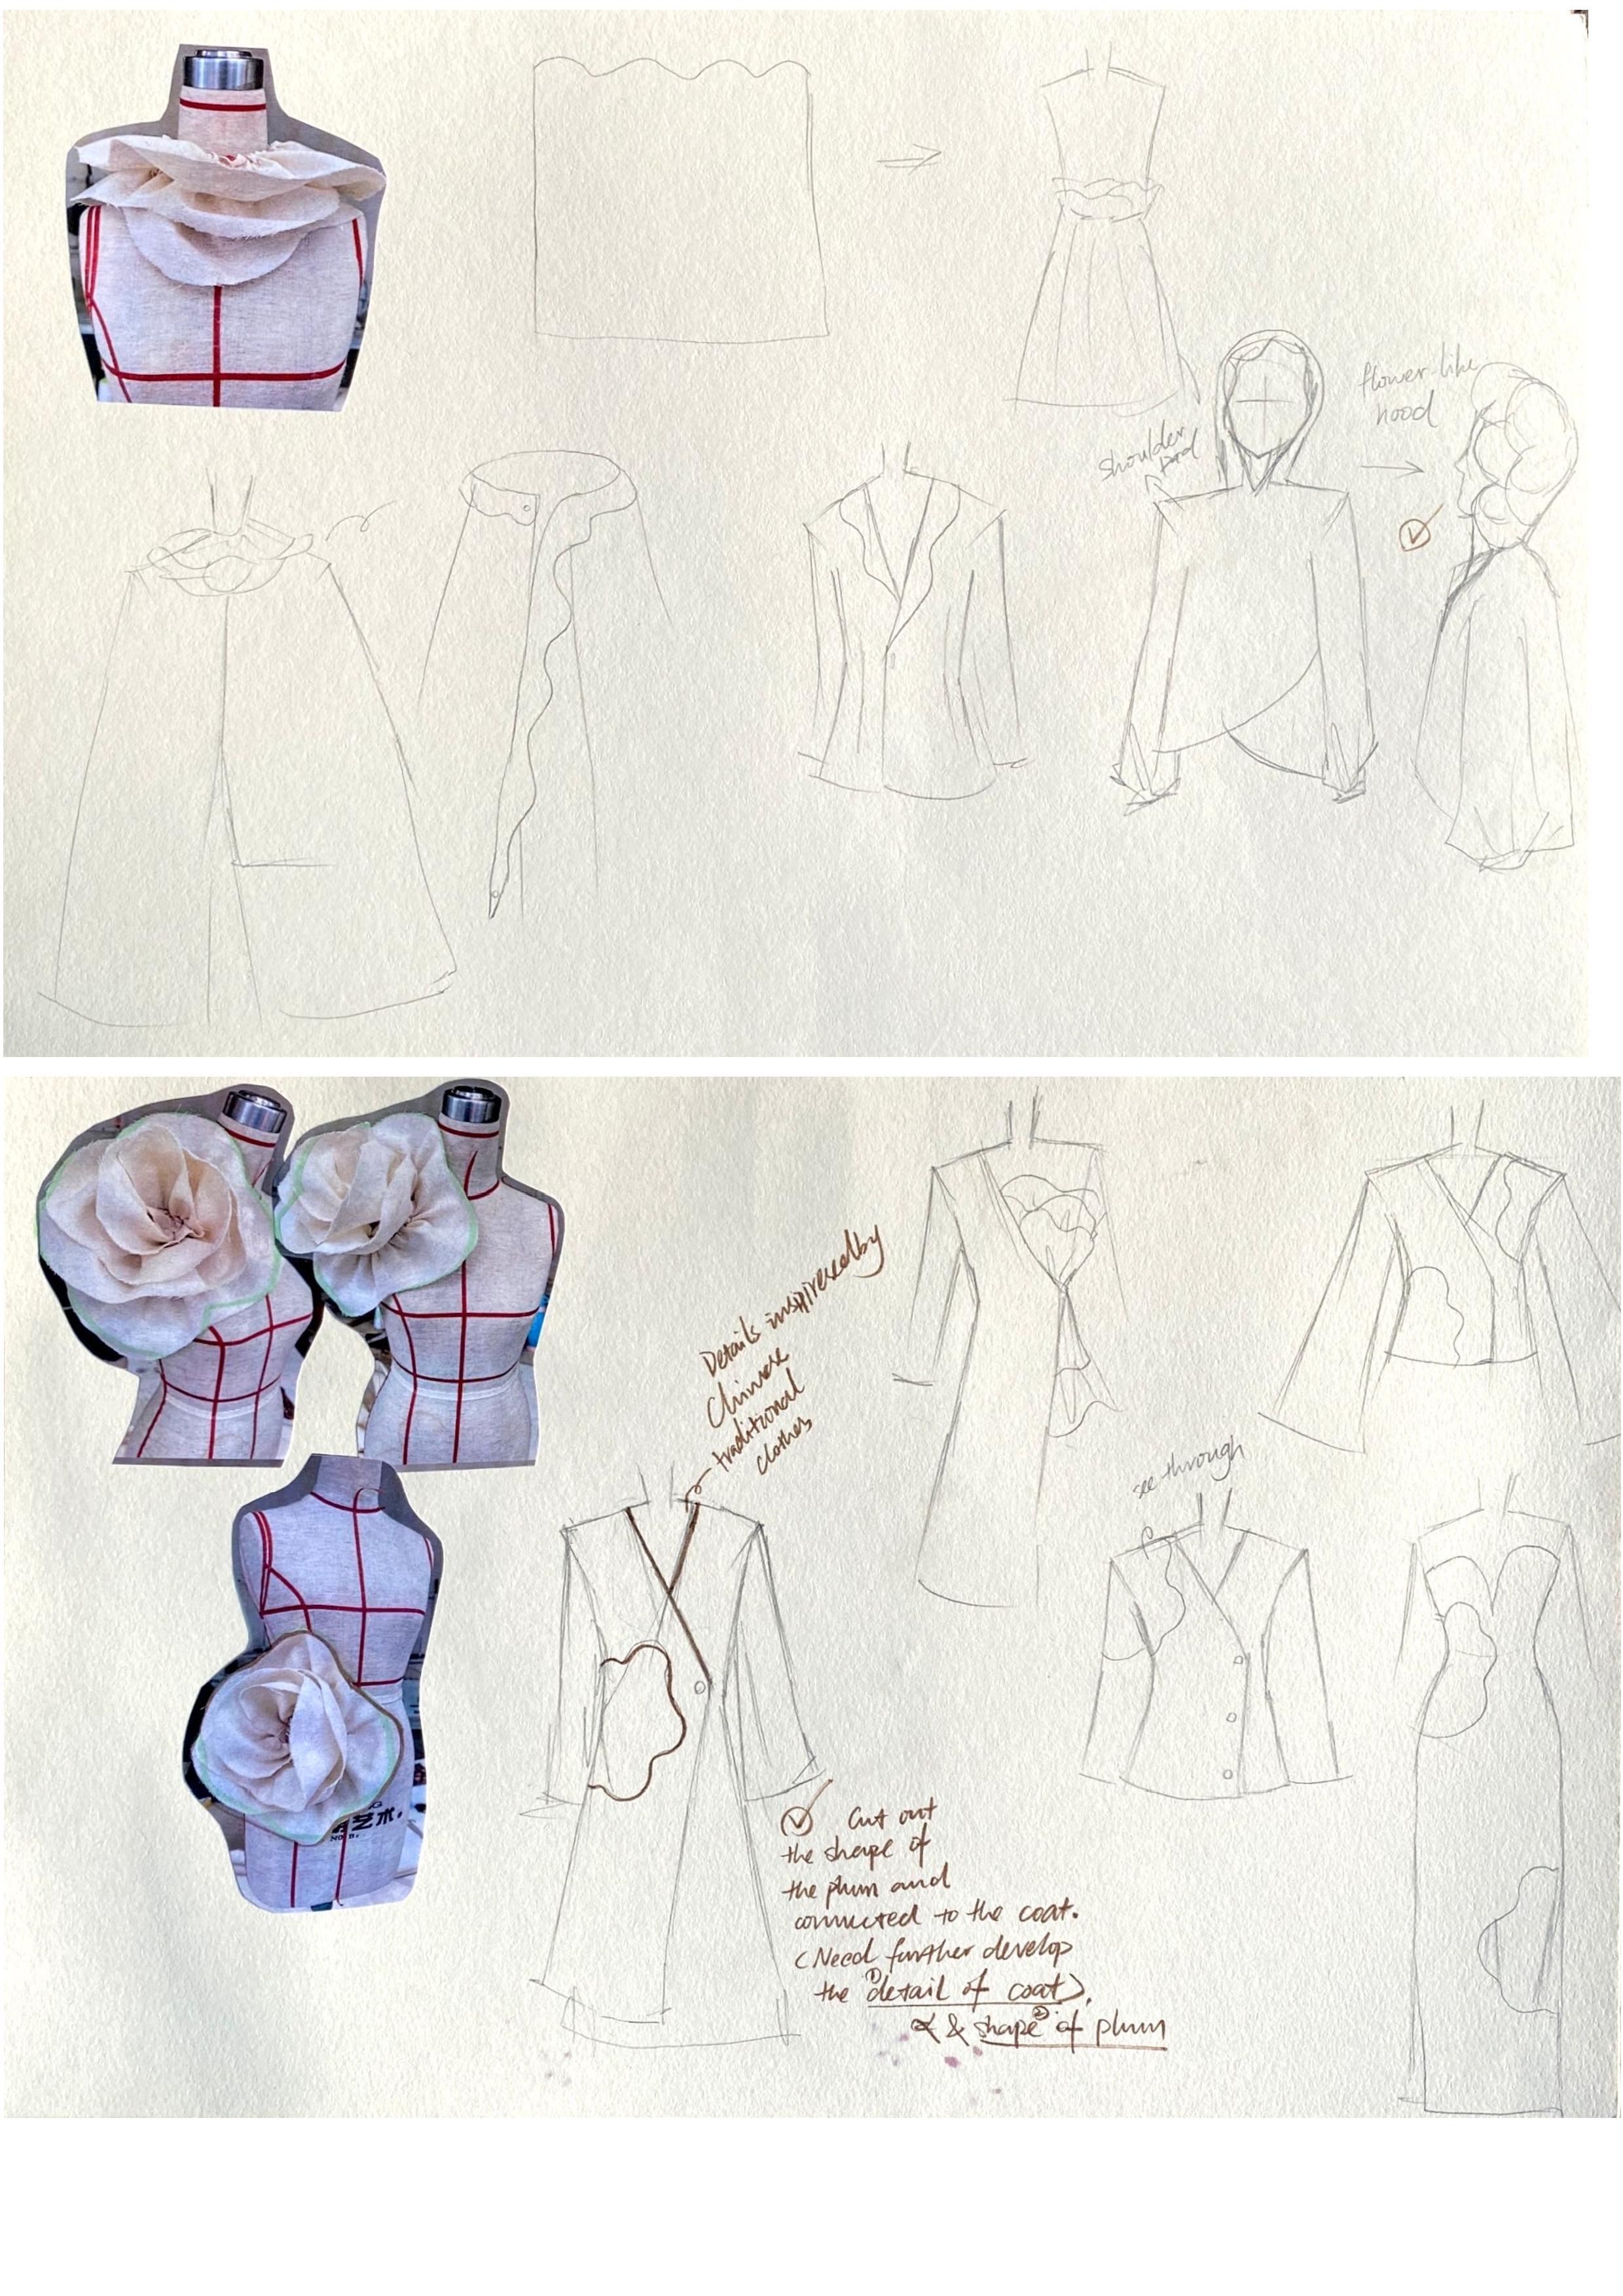 shoulder
pad
flower-like
hood
Details inspirexedby
Chinese
traditional
clothes
see through
Cut out
the shape of
the plum and
connected to the coat.
(Need further develop
the ①detail of coat).
& shape② of plum
艺术.